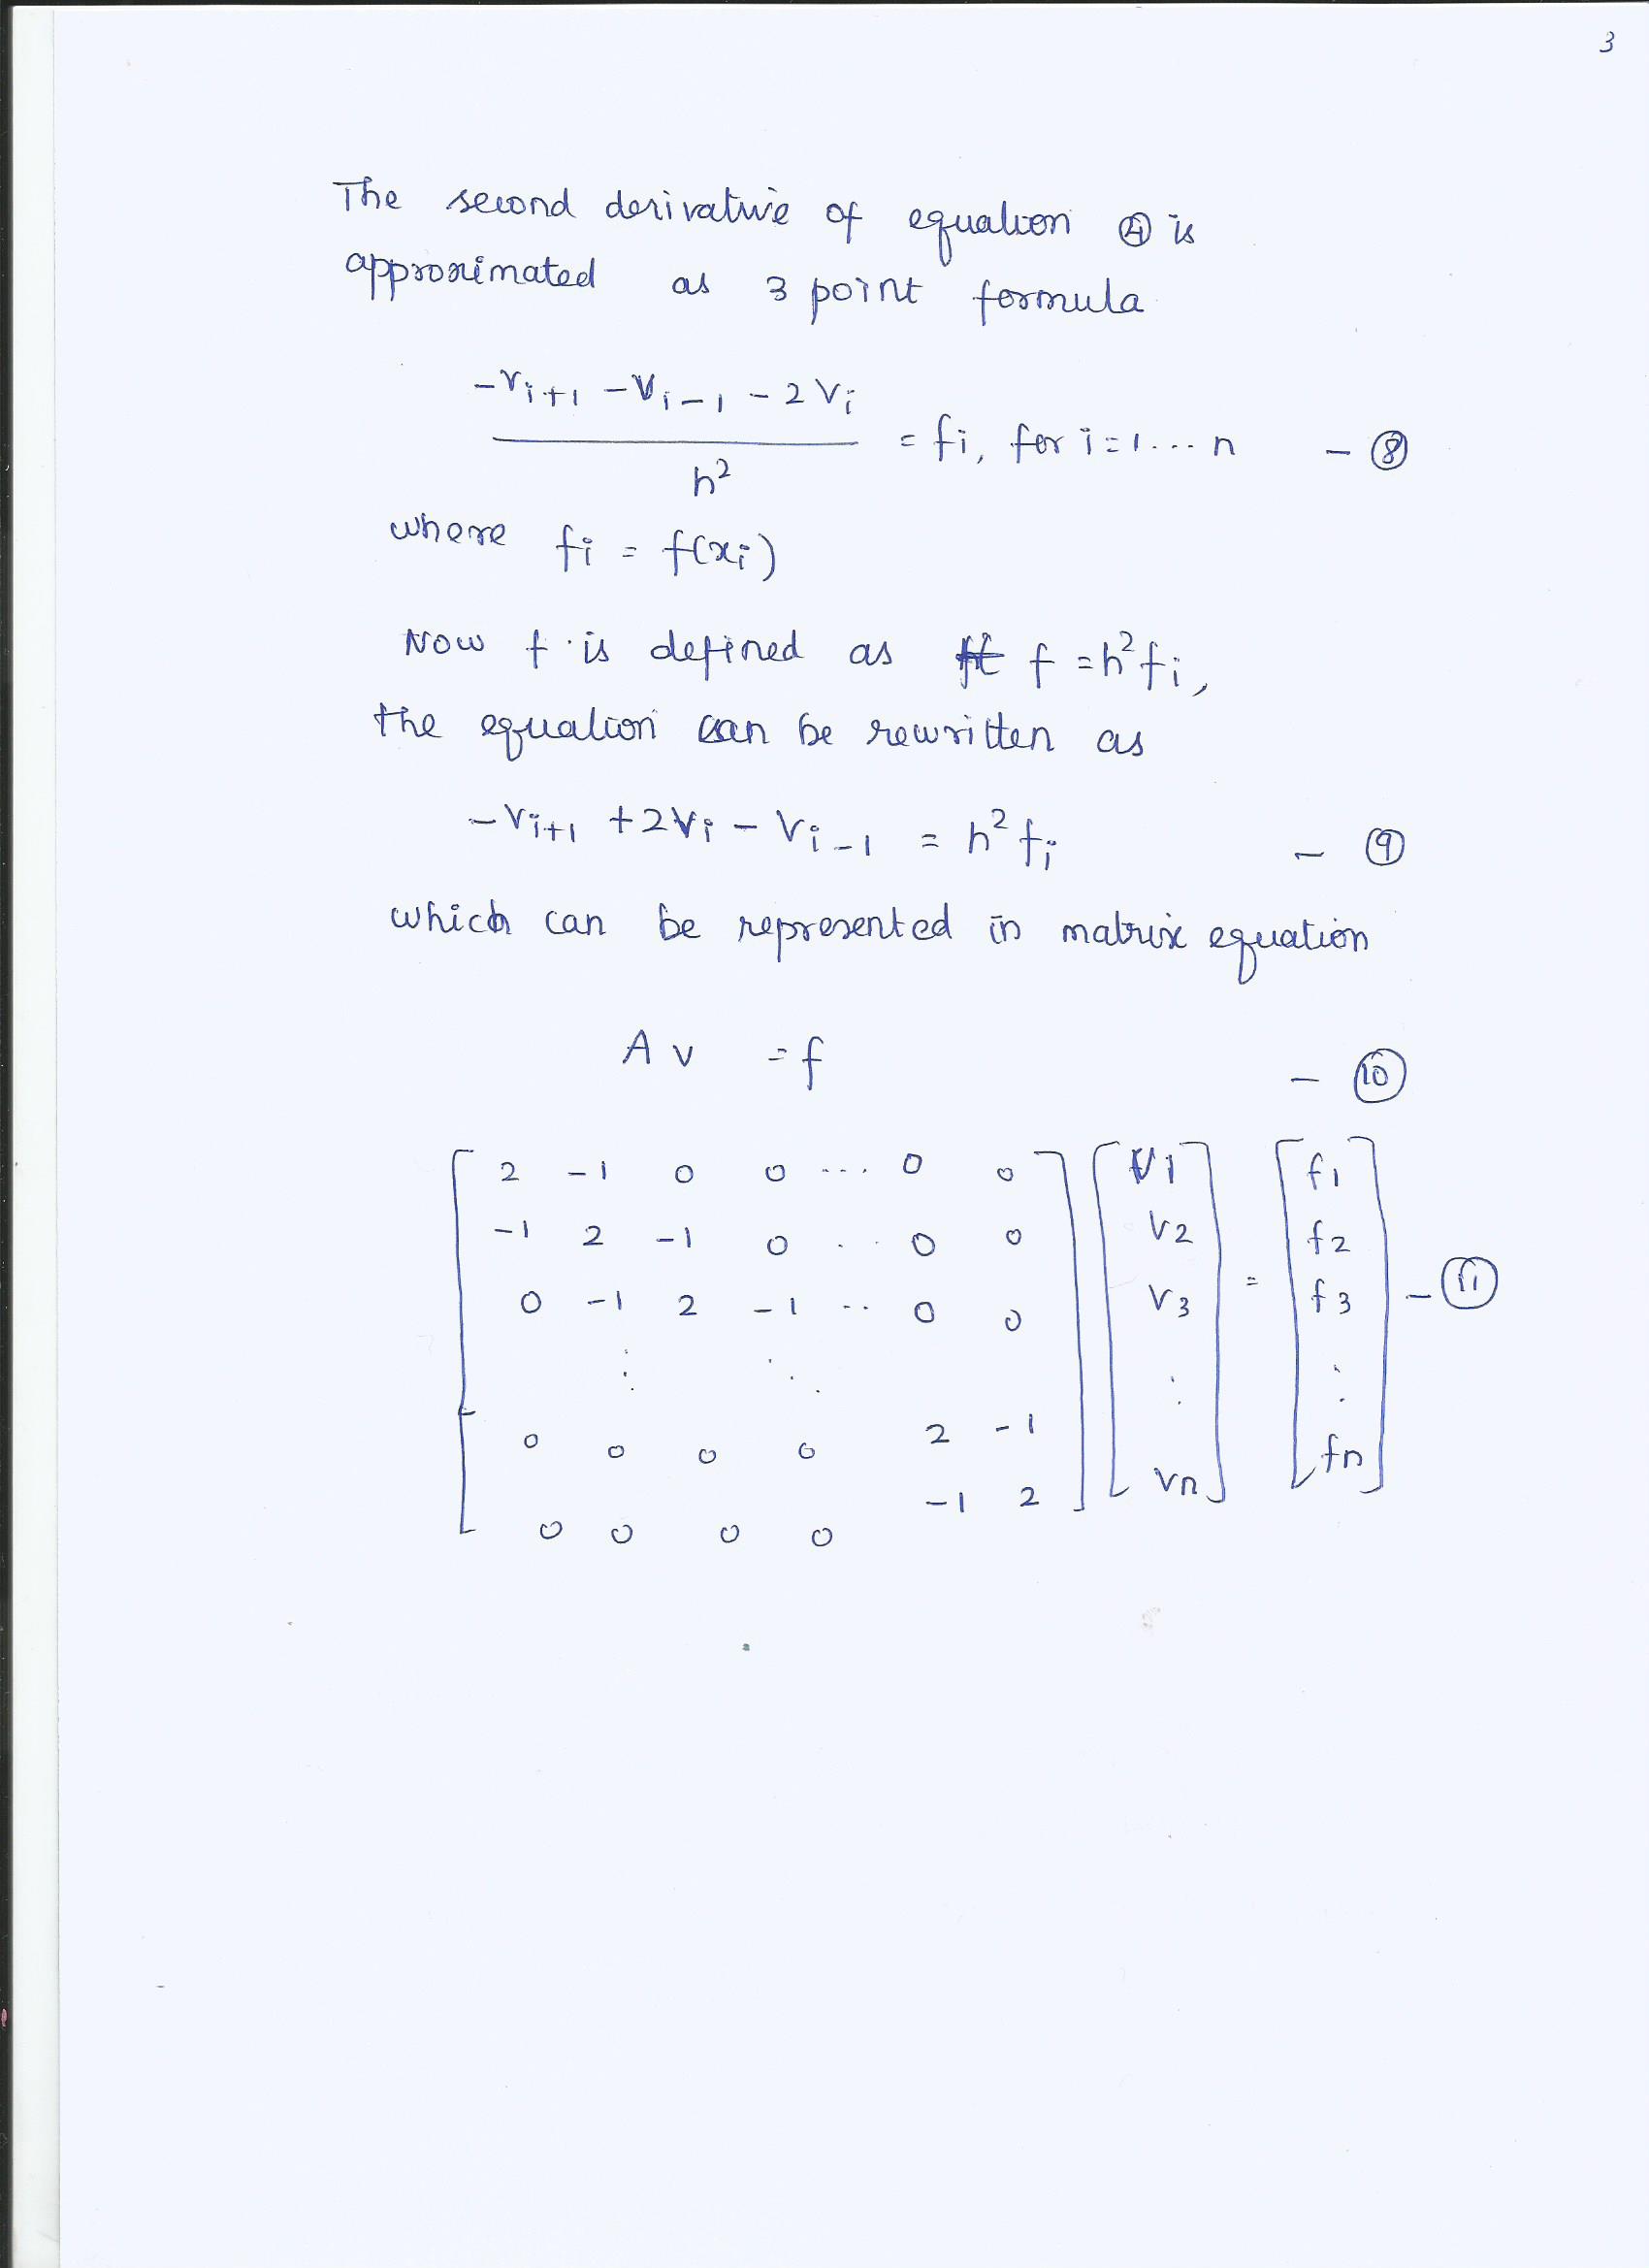 3
The second derivative of equation ④ is
approximated as 3 point formula
-Vi+1 -Vi-1 - 2Vi
h² = fi, for i=1....n - ⑧
where fi = f(xi)
Now f is defined as f = h²fi,
the equation can be rewritten as
-Vi+1 +2Vi - Vi-1 = h² fi - ⑨
which can be represented in matrix equation
A v = f - ⑩
2 -1 0 0 ... 0 0 V1 f1
-1 2 -1 0 .. 0 0 V2 f2
0 -1 2 -1 .. 0 0 V3 = f3 - ⑪
⋮ ⋱ ⋮ ⋮
0 0 0 0 2 -1 fn
-1 2 Vn
0 0 0 0